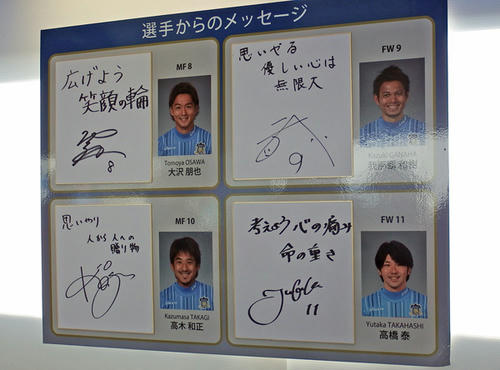 選手からのメッセージ
広げよう
笑顔の輪
8
MF 8
Tomoya OSAWA
大沢 朋也
思いやる
優しい心は
無限大
9
FW 9
Kazuki GANAHA
我那覇 和樹
思いやり
人から人への
贈り物
MF 10
Kazumasa TAKAGI
高木 和正
考えよう心の痛み
命の重さ
11
FW 11
Yutaka TAKAHASHI
高橋 泰